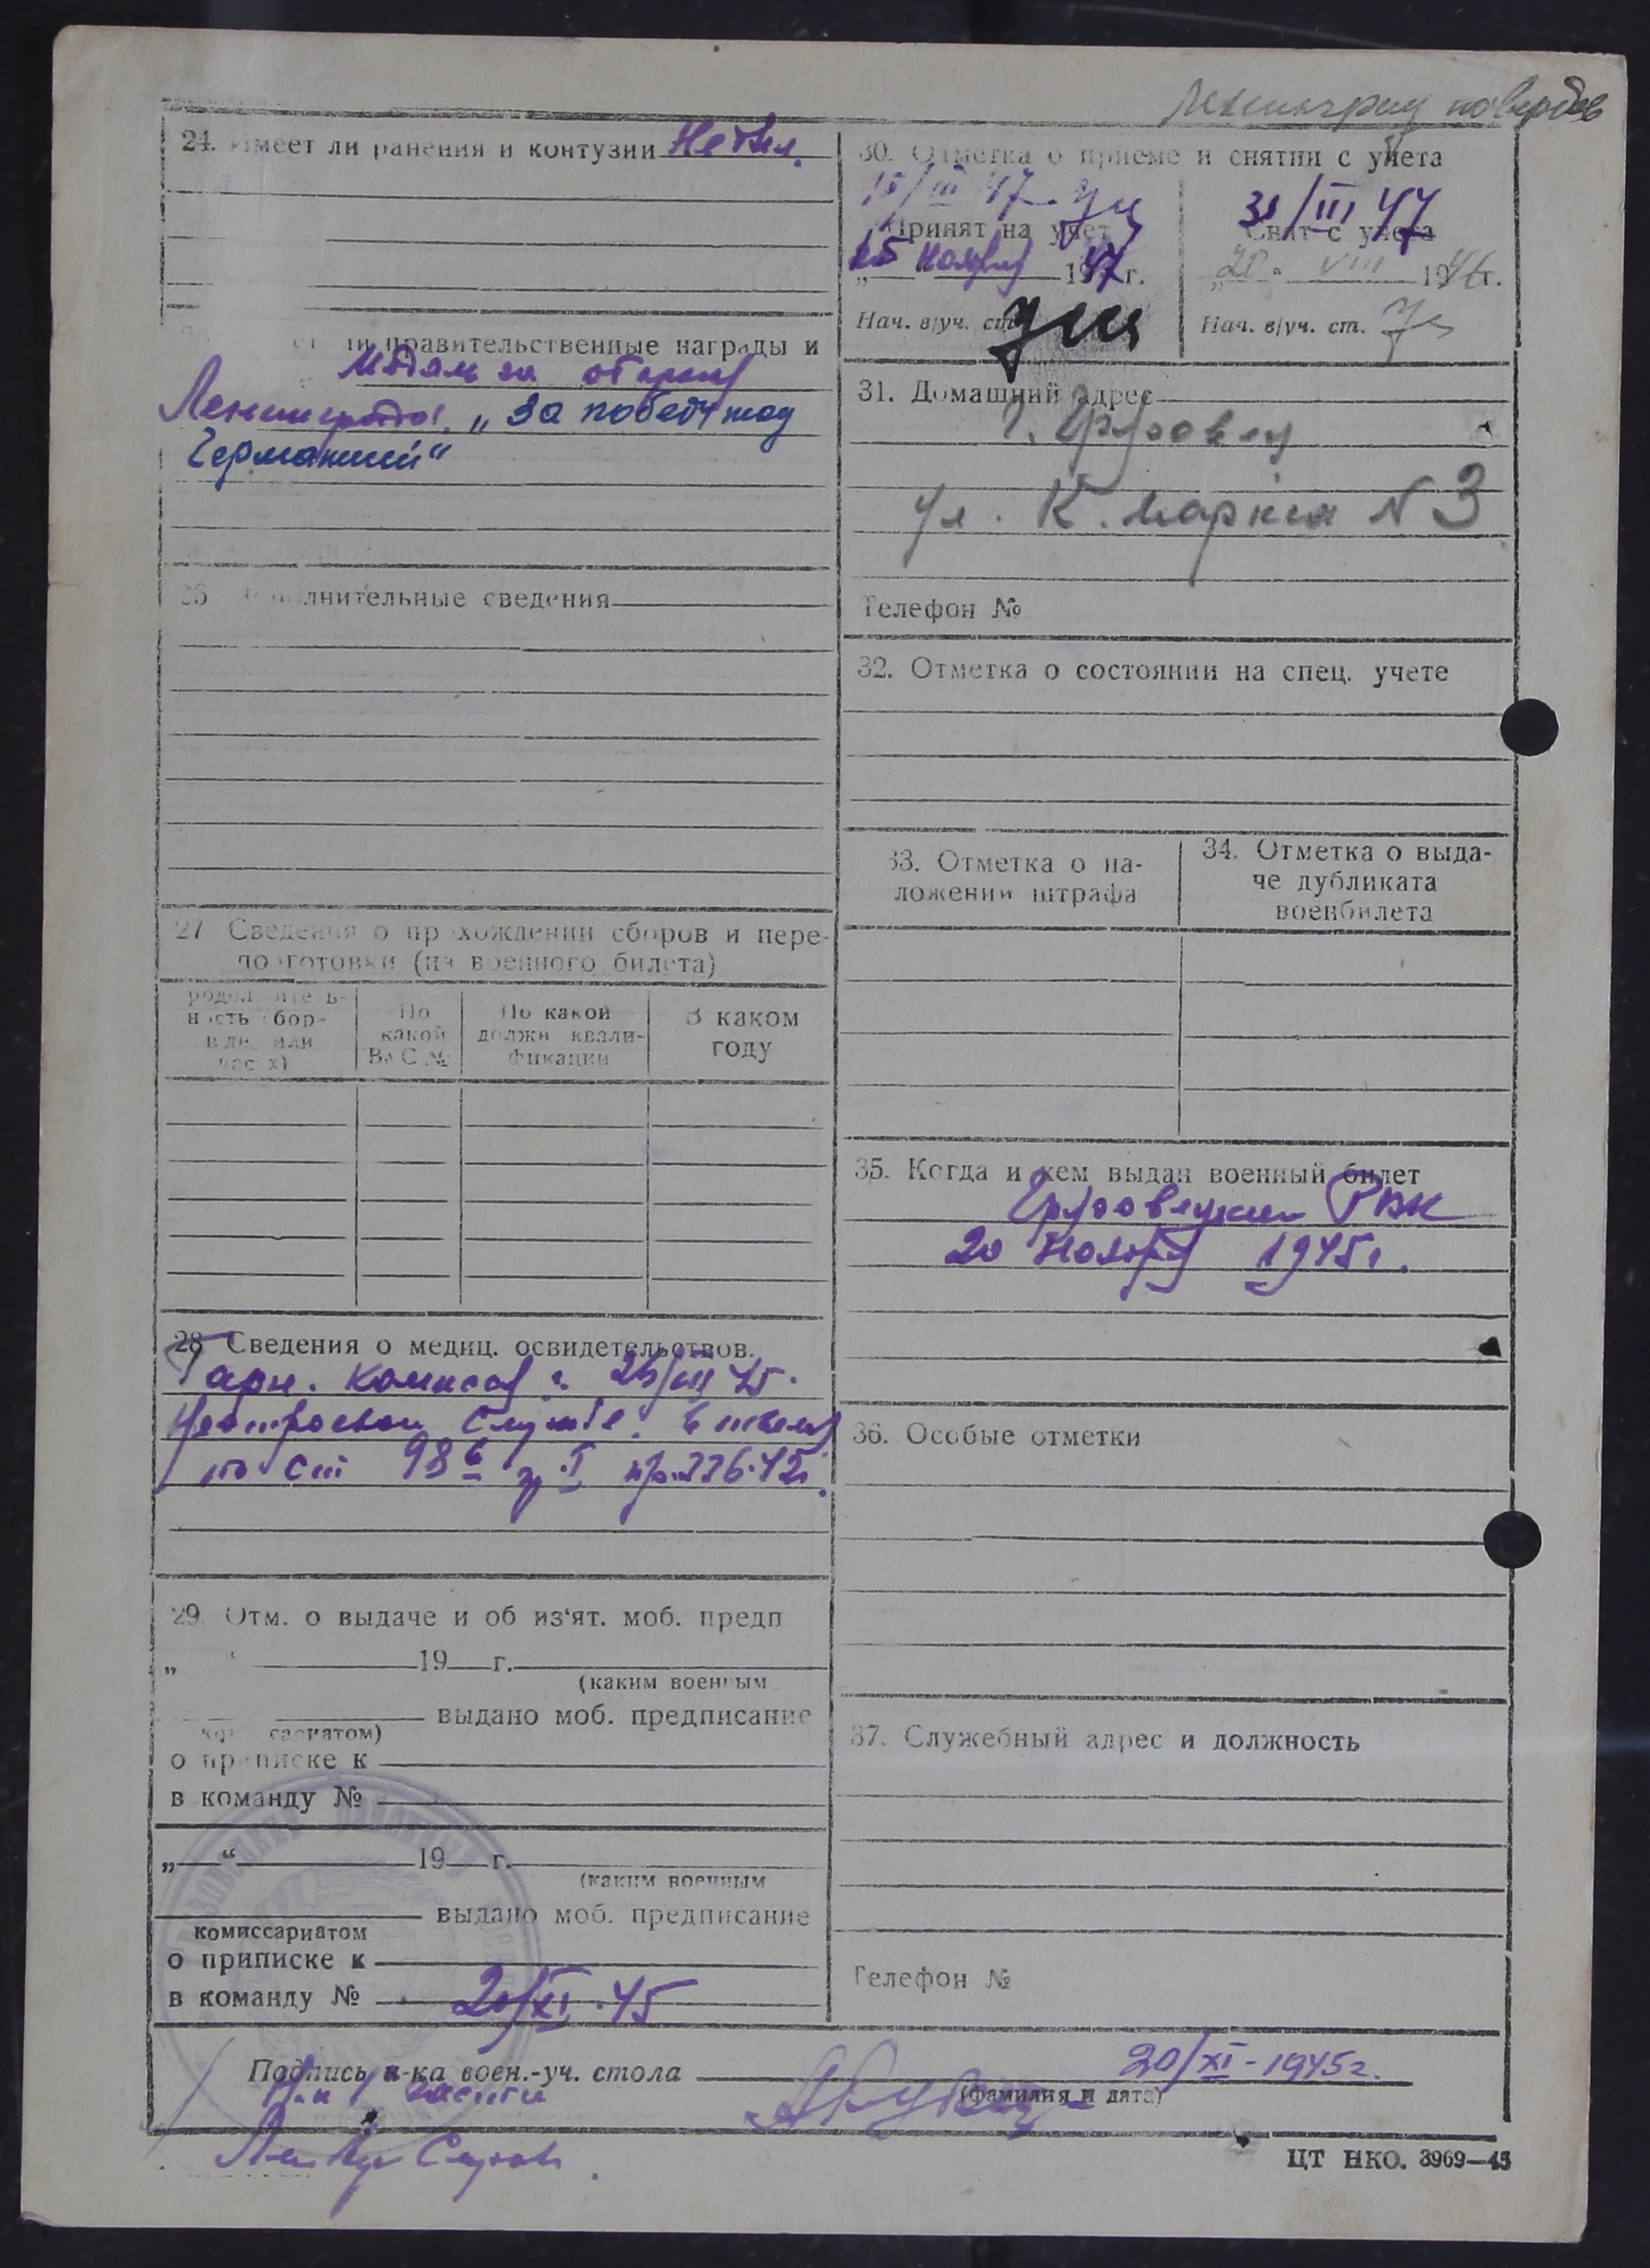 Ленинград
24. Имеет ли ранения и контузии Не был.
ли правительственные награды и
Медаль за оборону
Ленинграда, „За победу над
Германией“
26 лнительные сведения
27 Сведения о прохождении сборов и пере-
подготовки (из военного билета)
родолжитель-
ность сбор-
в дн. или
часах)
По
какой
ВуС №
По какой
должн квали-
фикации
В каком
году
28 Сведения о медиц. освидетельствов.
Гарн. 45.
службе. в
по ст 98 б гр. I пр. 336-42г.
29. Отм. о выдаче и об из‘ят. моб. предп
„ “ 19 г.
(каким военным
выдано моб. предписание
комиссариатом)
о приписке к
в команду №
„ “ 19 г.
(каким военным
выдано моб. предписание
комиссариатом
о приписке к
в команду № 20/XI.45
30. Отметка о приеме и снятии с учета
15/III 47.
Принят на учет
15 ноября 1947 г.
Нач. в/уч. ст.
31/III 47
Снят с учета
„20“ VIII 1946г.
Нач. в/уч. ст.
31. Домашний адрес
г. Грязовец
ул. К. Маркса N 3
Телефон №
32. Отметка о состоянии на спец. учете
33. Отметка о на-
ложении штрафа
34. Отметка о выда-
че дубликата
военбилета
35. Когда и кем выдан военный билет
Грязовецким РВК
20 Ноября 1945г.
36. Особые отметки
37. Служебный адрес и должность
Телефон №
Подпись н-ка воен.-уч. стола 20/XI-1945г.
(фамилия и дата)
Н-к 1 части
ЦТ НКО. 3969—45